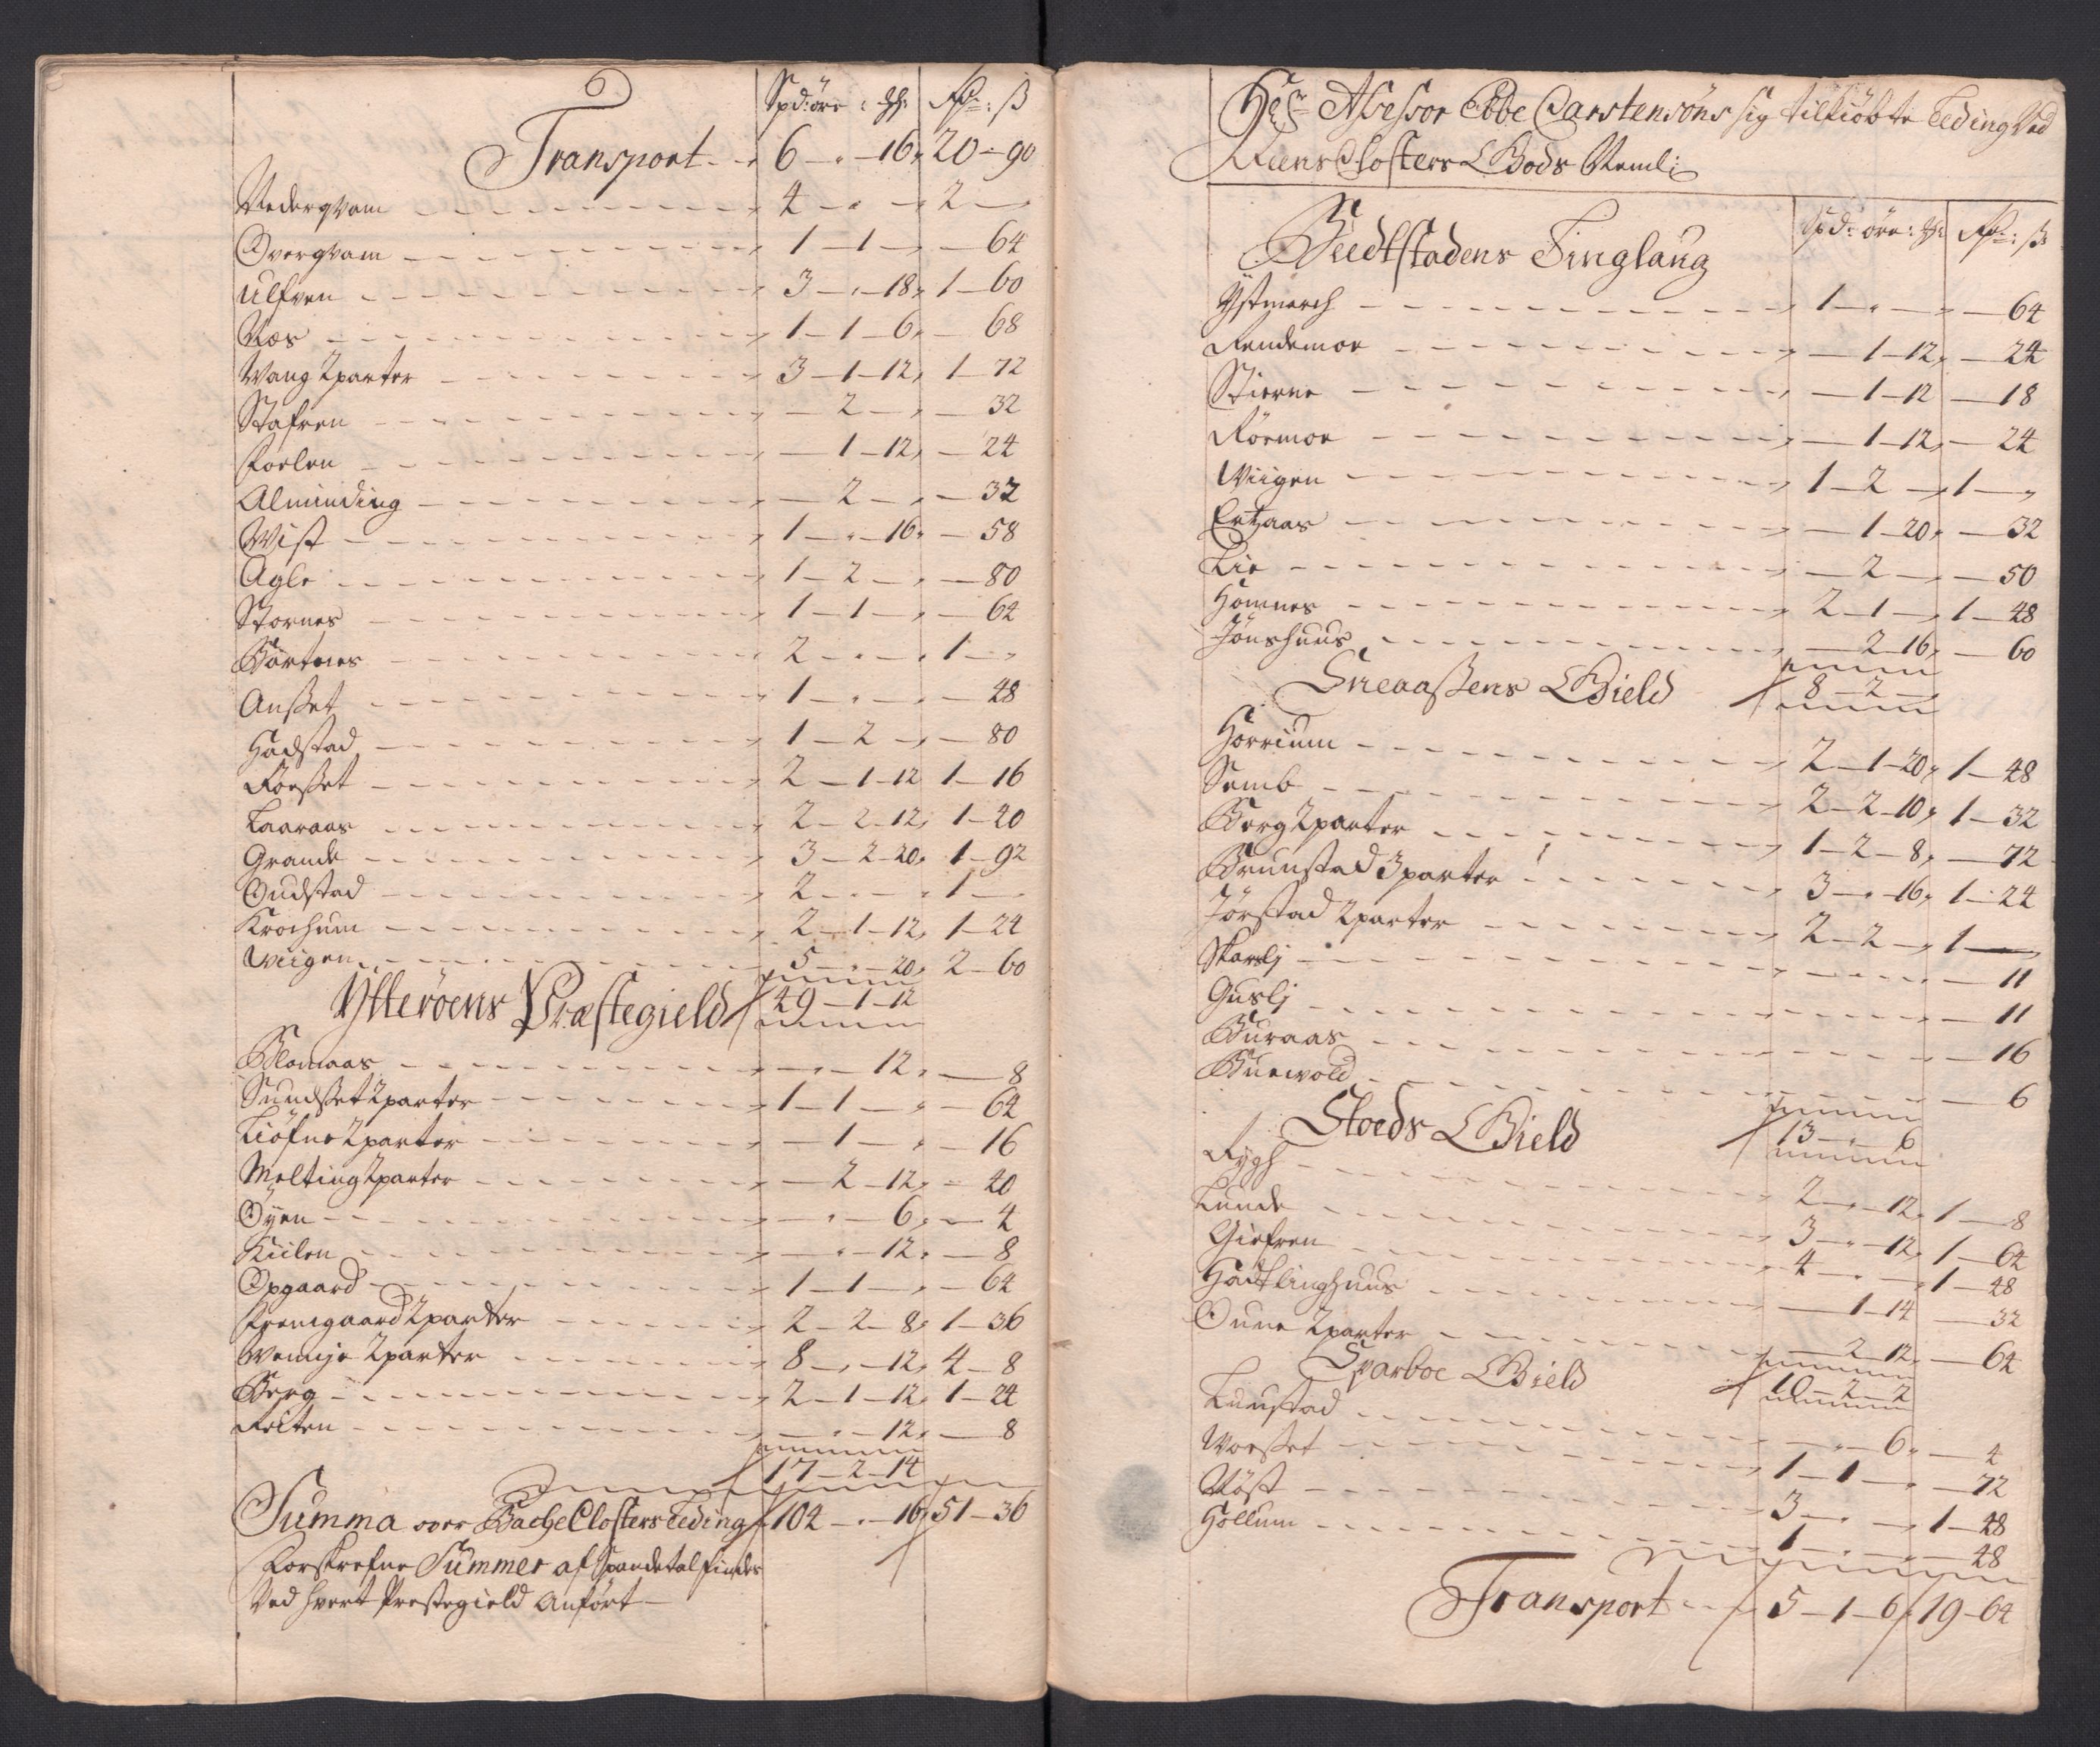 Spd: öre : ℔: Rdr: ß
Transport - - 6 - " - 16 " 20 - 90
Nedergvam - - - 4 - " - 2 -
Overgvam - - - 1 - 1 - " - 64
Ulfven - - - 3 - " - 18 " 1 - 60
Næs - - - 1 - 1 - 6 " - 68
Wang 2 parter - - - 3 - 1 - 12 " 1 - 72
Stafren - - - - 2 - " - 32
Foelen - - - - 1 - 12 " - 24
Alminding - - - - 2 - " - 32
Wist - - - 1 - " - 16 " - 58
Agle - - - 1 - 2 - " - 80
Stornes - - - 1 - 1 - " - 64
Børtnes - - - 2 - " - " 1 - "
Ausset - - - 1 - " - - 48
Hadstad - - - 1 - 2 - " - 80
Foesset - - - 2 - 1 - 12 1 - 16
Laaraas - - - 2 - 2 - 12 " 1 - 20
Grande - - - 3 - 2 - 20 " 1 - 92
Oudstad - - - 2 - " - " 1 - "
Krochum - - - 2 - 1 - 12 " 1 - 24
Wiigen - - - 5 - " - 20 " 2 - 60
Ytterøens Præstegield / 49 - 1 - 12
Blomaas - - - - " - 12 " - 8
Sundsset 2 parter - - - 1 - 1 - " - 64
Liøfne 2 parter - - - - 1 - " - 16
Melting 2 parter - - - - 2 - 12 " - 40
Øÿen - - - - " - 6 " - 4
Kiilen - - - - " - 12 " - 8
Opgaard - - - 1 - 1 - " - 64
Fremgaard 2 parter - - - 2 - 2 - 8 " 1 - 36
Wennje 2 parter - - - 8 - " - 12 " 4 - 8
Berg - - - 2 - 1 - 12 " 1 - 24
Reiten - - - - " - 12 " - 8
/ 17 - 2 - 14
Summa over Bache Closters Leding / 104 - " - 16 / 51 - 36
Forskrefne Summer af Spandetal findes
Ved hvert Prestegield Anført -
Hr: Assessor Ebbe Carstensøns sig tilkiøbte Leding Ved
Reens Closters Gods Neml:
Spd: öre: ℔: Rdr: ß
Beedtstadens Tinglaug
Ystmarch - - - 1 - " - " - 64
Rendemoe - - - - 1 - 12 " - 24
Stierne - - - - 1 - 12 - 18
Rörmoe - - - - 1 - 12 " - 24
Wiigen - - - 1 - 2 - " 1 - "
Ertzaas - - - - 1 - 20 " - 32
Lie - - - - 2 - " - 50
Homnes - - - 2 - 1 - " 1 - 48
Jönshuus - - - - 2 - 16 " - 60
Sneaassens Gield / 8 - 2 -
Horrium - - - 2 - 1 - 20 " 1 - 48
Semb - - - 2 - 2 - 10 " 1 - 32
Berg 2 parter - - - 1 - 2 - 8 " - 72
Brunstad 3 parter - - - 3 - " - 16 " 1 - 24
Jørstad 2 parter - - - 2 - 2 - " 1 -
Skarlj - - - - 11
Guslj - - - - 11
Buraas - - - - 16
Buewold - - - - 6
Stoeds Gield / 13 - " - 6
Rygh - - - 2 - " - 12 " 1 - 8
Lunde - - - 3 - " - 12 " 1 - 64
Giefren - - - 4 - " - " 1 - 48
Hatlinghuus - - - - 1 - 14 - 32
Oune 2 parter - - - - 2 - 12 " - 64
Sparboe Gield / 10 - 2 - 2
Luustad - - - - " - 6 " - 4
Woesset - - - 1 - 1 - " - 72
Nöst - - - 3 - " - " 1 - 48
Hollum - - - 1 - " - " - 48
Transport - - / 5 - 1 - 6 / 19 - 64